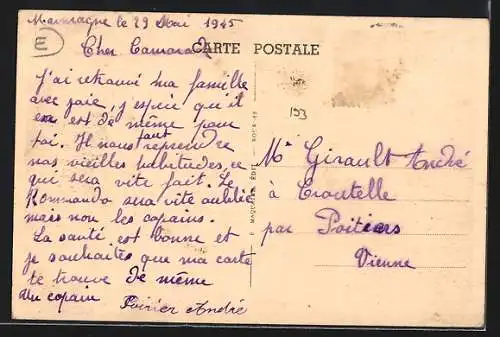 Marmagne le 29 Mai 1945
E
Cher Camarade
CARTE POSTALE
J'ai retrouvé ma famille
avec joie, j'espère qu'il
en est de même pour
toi. Il nous faut reprendre
nos vieilles habitudes, ce
qui sera vite fait. Le
Kommando sera vite oublié
mais non les copains.
La santé est bonne et
je souhaites que ma carte
te trouve de même
Un copain
Poirier André
193
Mr Girault André
à Croutelle
par Poitiers
Vienne